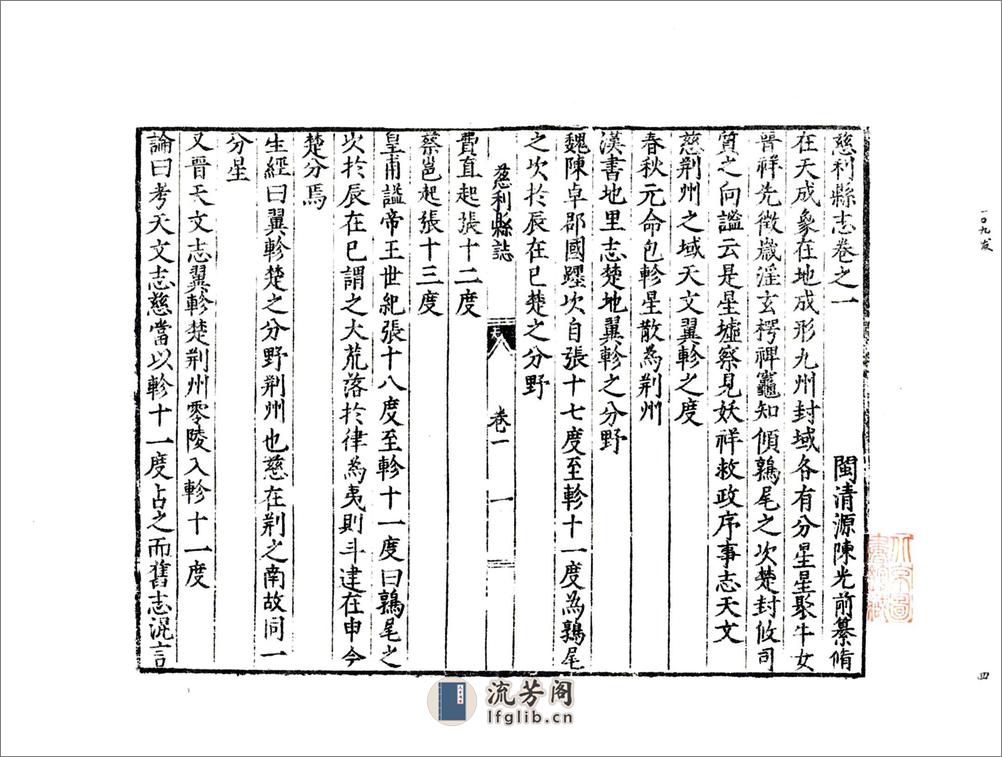 慈利縣志卷之一
閩清源陳光前纂脩
在天成象在地成形九州封域各有分星星聚牛女
晉祥先徵歲淫玄枵裨竈知傾鶉尾之次楚封攸司
質之向謐云是星墟察見妖祥救政序事志天文
慈荆州之域天文翼軫之度
春秋元命包軫星散為荆州
漢書地里志楚地翼軫之分野
魏陳卓郡國躔次自張十七度至軫十一度為鶉尾
之次於辰在巳楚之分野
慈利縣誌
卷一
一
費直起張十二度
蔡邕起張十三度
皇甫謐帝王世紀張十八度至軫十一度曰鶉尾之
次於辰在巳謂之大荒落於律為夷則斗建在申今
楚分焉
生經曰翼軫楚之分野荆州也慈在荆之南故同一
分星
又晉天文志翼軫楚荆州零陵入軫十一度
論曰考天文志慈當以軫十一度占之而舊志混言
四
流芳阁
lfglib.cn